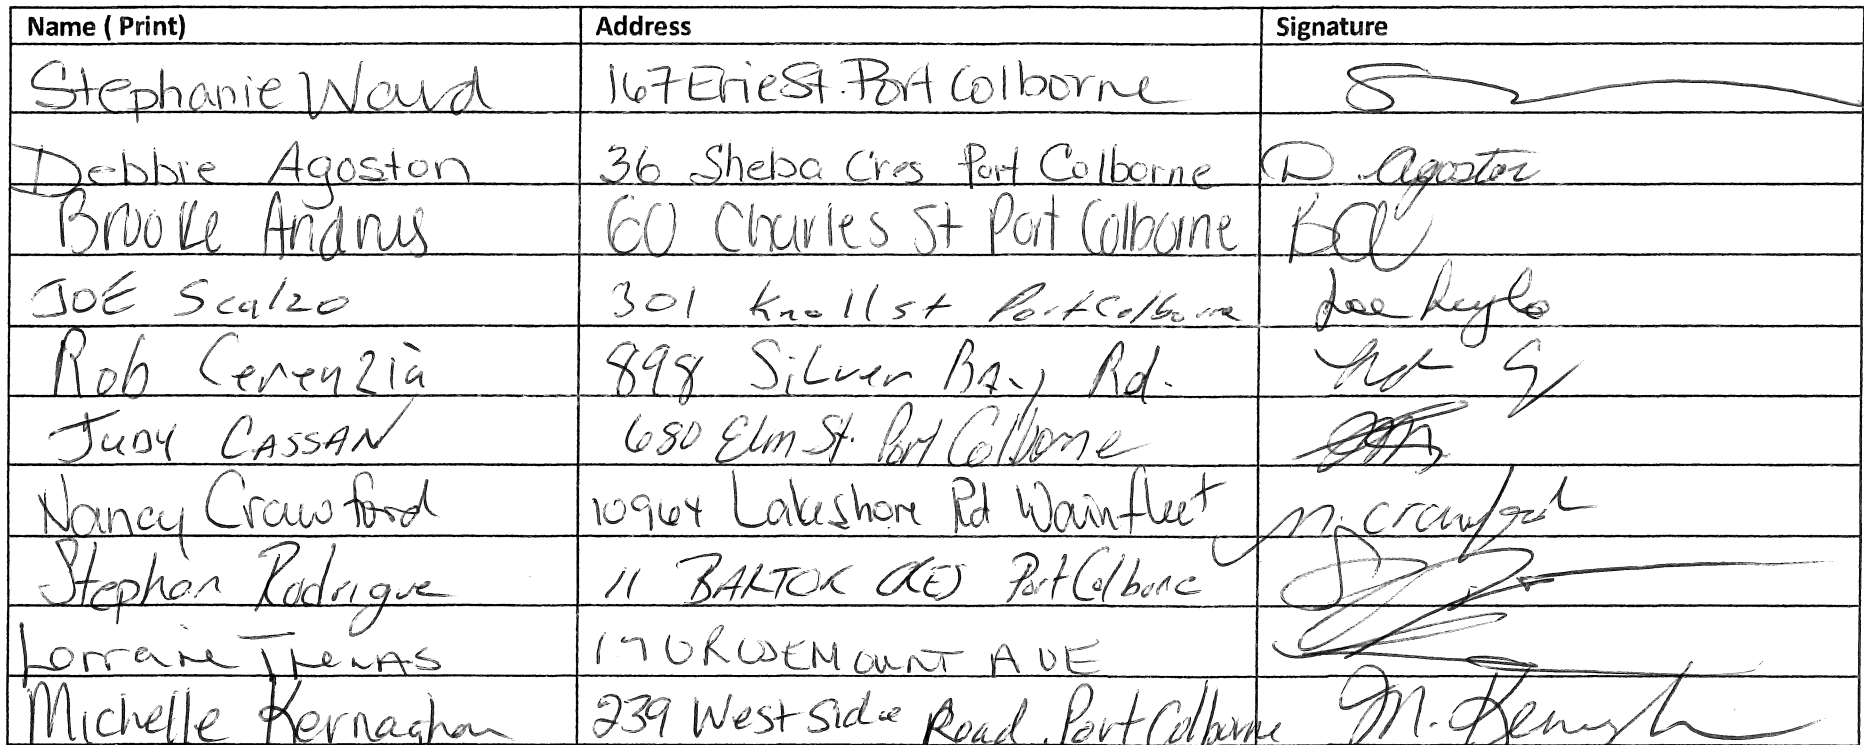 Name ( Print) Address Signature
Stephanie Ward 167 Erie St. Port Colborne
Debbie Agoston 36 Sheba Cres Port Colborne D. Agoston
Brooke Andrus 60 Charles St Port Colborne BA
JOE Scalzo 301 Knoll st Port Colborne
Rob Cerenzia 898 Silver Bay Rd.
JUDY CASSAN 680 Elm St. Port Colborne
Nancy Crawford 10964 Lakeshore Rd Wainfleet N. Crawford
Stephan Rodrigue 11 BARTOK CRES Port Colborne
Lorraine THOMAS AVE
Michelle Kernaghan 239 West Side Road. Port Colborne M. Kernaghan